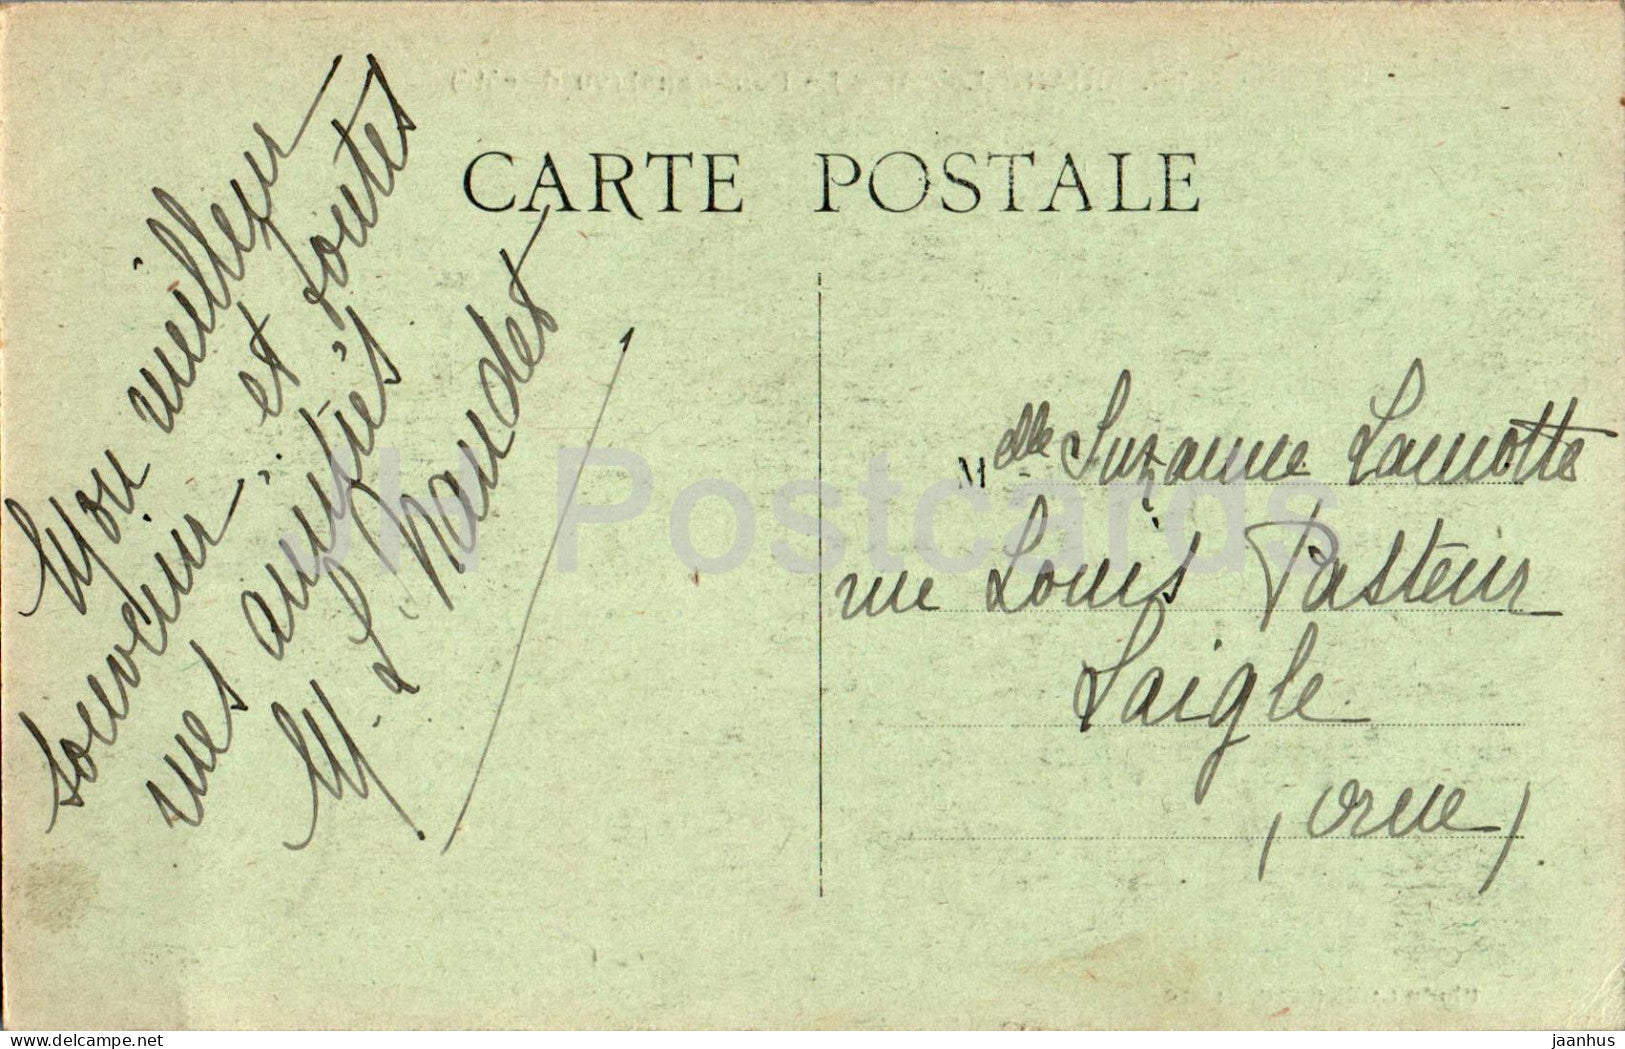 CARTE POSTALE
Mon meilleur
souvenir et toutes
mes amitiés
M. L. Naudet
Mlle Suzanne Lamotte
rue Louis Pasteur
Laigle
(Orne)
JH Postcards
delcampe.net
jaanhus